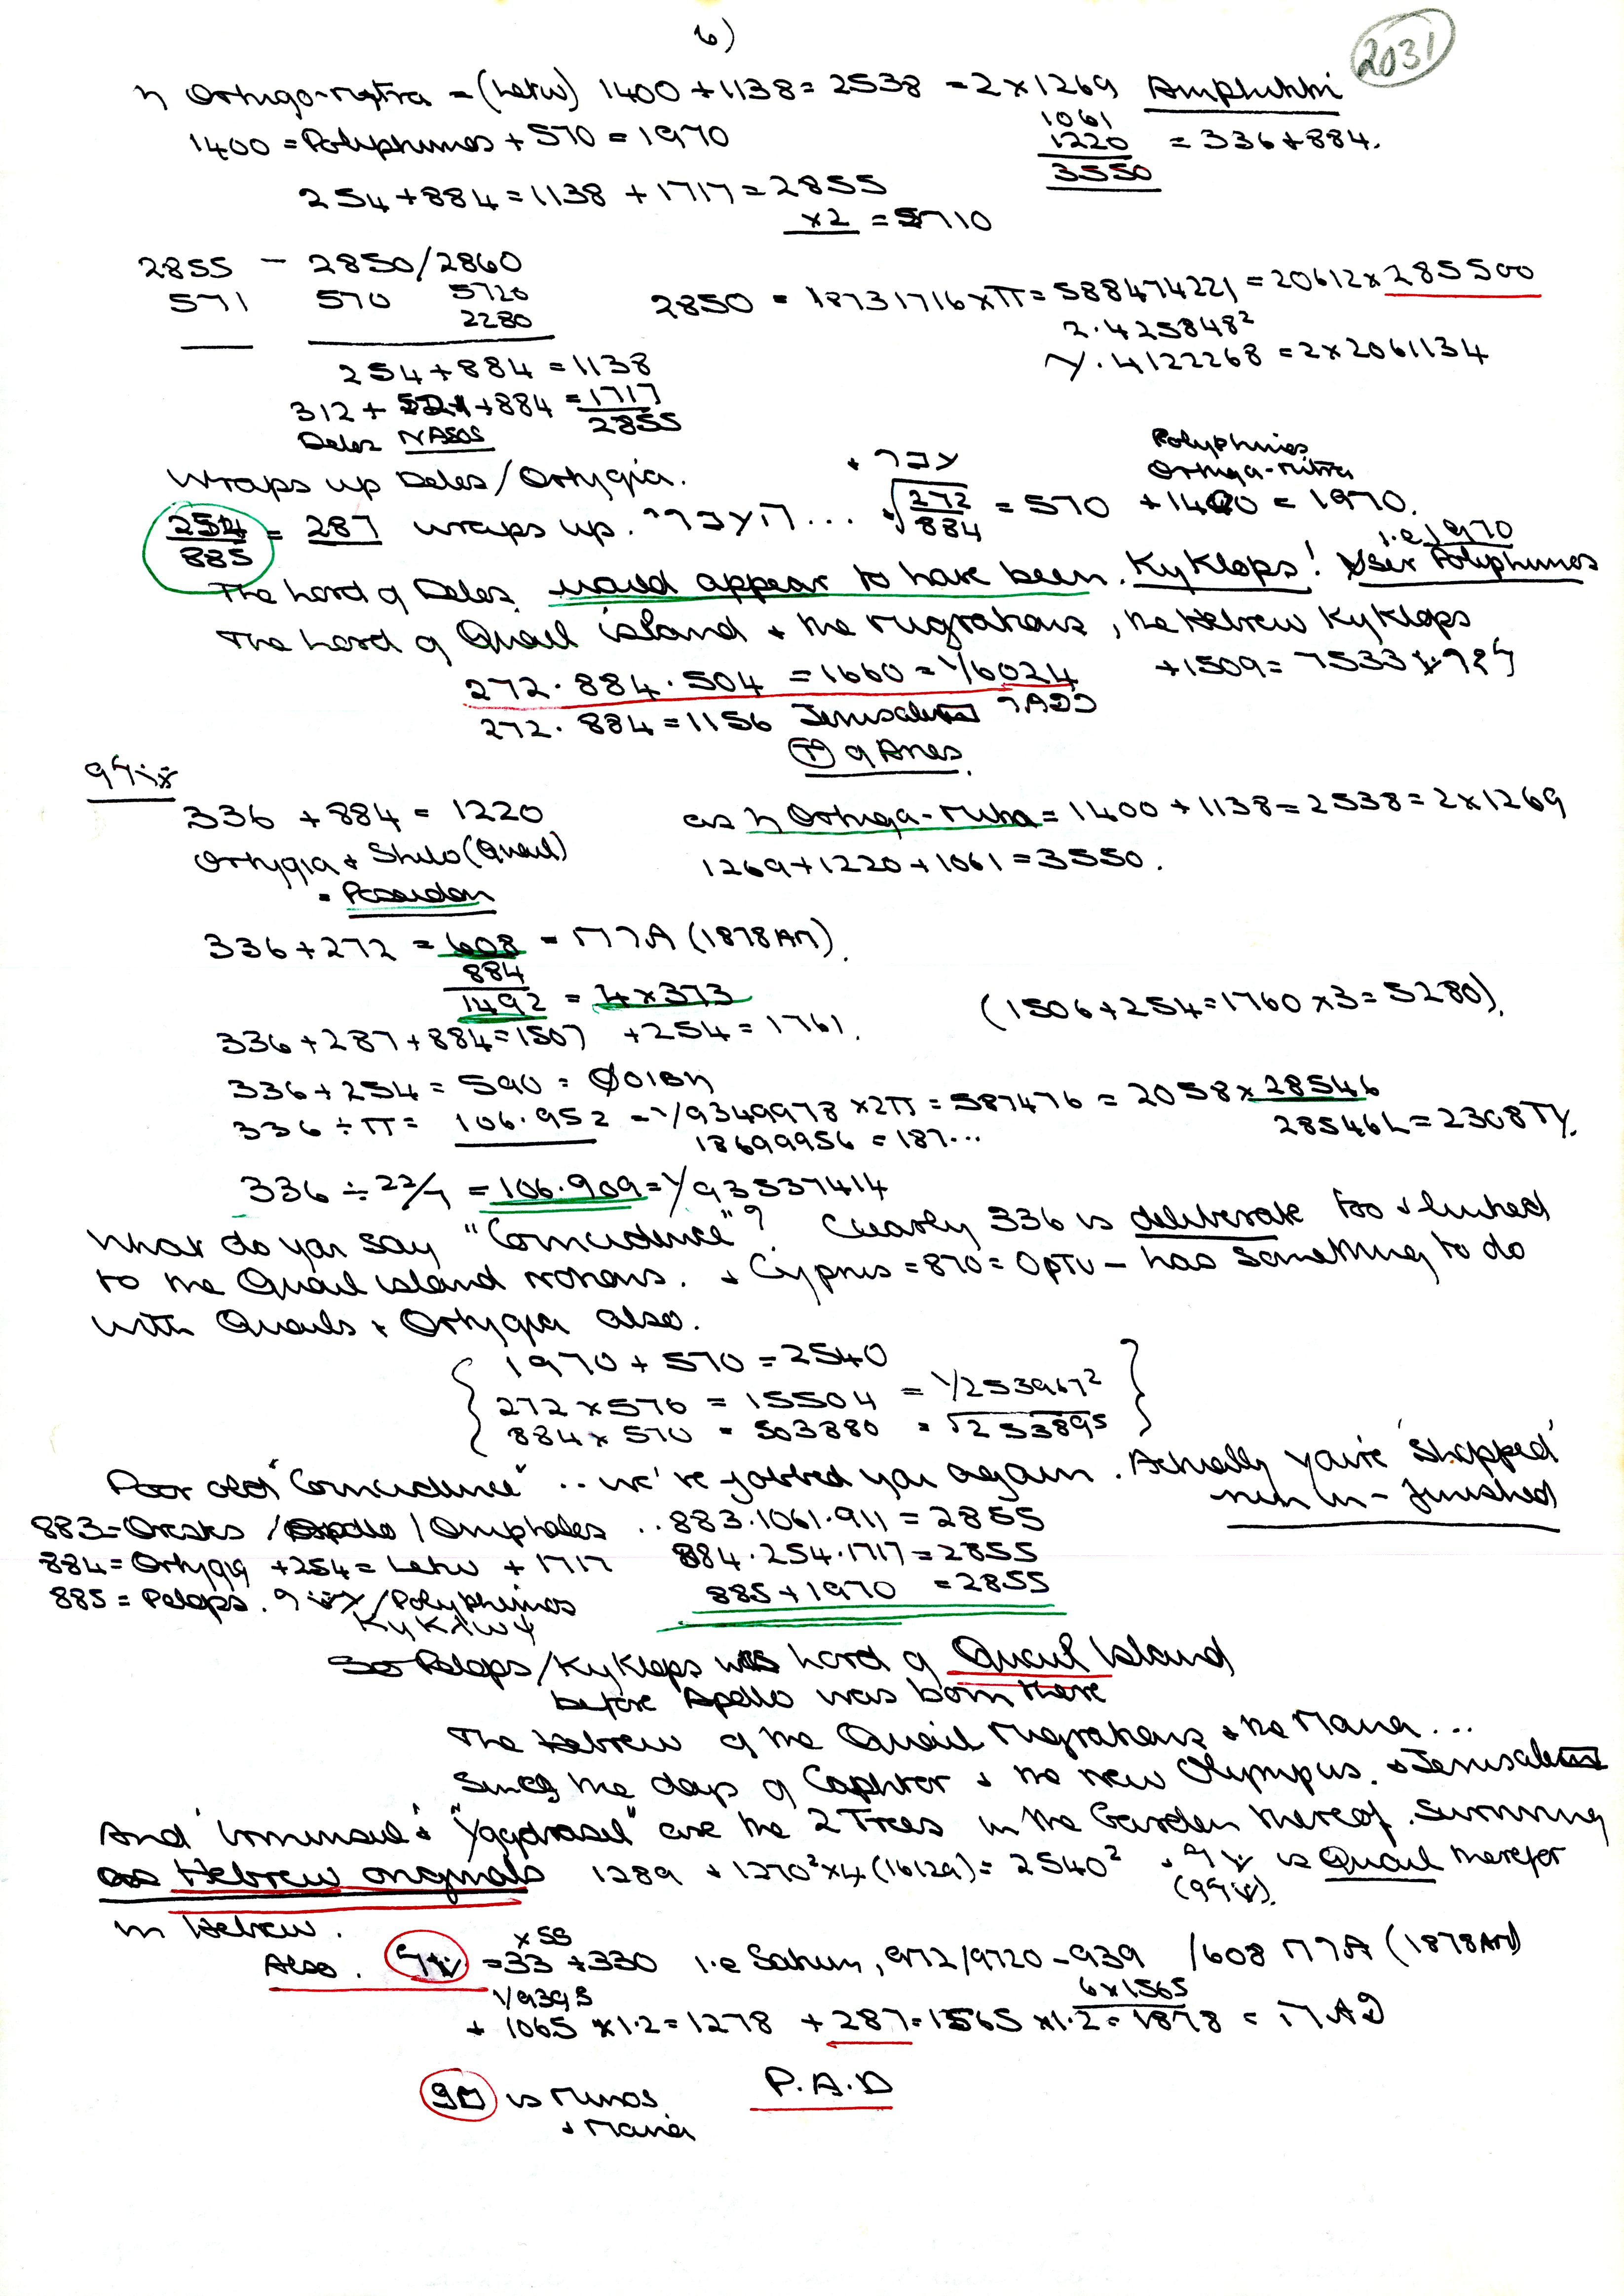 6)
2031
η Ortugo-mitra = (Letw) 1400 + 1138 = 2538 = 2 x 1269 Amphitrit
1400 = Polyphimos + 570 = 1970
1061
1220 = 336 + 884.
3550
254 + 884 = 1138 + 1717 = 2855
x2 = 5710
2855 - 2850/2860
571 570 5720
2280
2850 = 18731716 x π = 588474221 = 20612 x 285500
2.425848²
γ.4122268 = 2 x 2061134
254 + 884 = 1138
312 + 521 + 884 = 1717
2855
Delos NASOS
Wraps up Delos/Ortygia.
254 = 287 wraps up.
885
√272 = 570 + 1400 = 1970.
884
Polyphimos
Ortuga-mitra
i.e 1970
The Lord of Delos would appear to have been KyKlops! Polyphimos
The Lord of Quail island + the migrations, the Hebrew KyKlops
272.884.504 = 1660 = √6024 + 1509 = 7533
272.884 = 1156 Jerusalem
of Ares.
336 + 884 = 1220
Ortygia + Shilo (Quail)
= Poseidon
as η Ortuga-mitra = 1400 + 1138 = 2538 = 2 x 1269
1269 + 1220 + 1061 = 3550.
336 + 272 = 608 = (1878 AM).
884
1492 = 4 x 373
(1506 + 254 = 1760 x 3 = 5280).
336 + 287 + 884 = 1507 + 254 = 1761.
336 + 254 = 590 = ΦOIBH
336 ÷ π = 106.952 = 1/9349978 x 2π = 587476 = 2058 x 28546
18699956 = 187...
28546L = 2308TY.
336 ÷ 22/7 = 106.909 = 1/93537414
What do you say "Coincidence"? Clearly 336 is deliberate too + linked
to the Quail island notions. + Cyprus = 870 = OPTU - has something to do
with Quails + Ortygia also.
1970 + 570 = 2540
272 x 570 = 15504 = 1/253967²
884 x 570 = 503880 = √253895
Poor old "Coincidence" .. we've jobbed you again. Actually you're 'shopped'
run in - finished
883 = Orcsks /Apollo / Omphalos .. 883.1061.911 = 2855
884 = Ortygia + 254 = Letw + 1717 884.254.1717 = 2855
885 = Pelops. /Polyphimos 885 + 1970 = 2855
KyKλωψ
So Pelops/KyKlops was Lord of Quail Island
before Apollo was born there
The Hebrew of the Quail migrations + the Mana...
Since the days of Caphtor + the new Olympus. + Jerusalem
And 'Irminsul' + "Yggdrasil" are the 2 Trees in the Garden thereof. Surviving
as Hebrew originals 1289 + 1270² x 4 (16129) = 2540² is Quail therefor
in Hebrew.
x 55
Also. = 33 + 330 i.e Saturn, 972/9720 - 939 /608 (1878AM)
1/9393
6 x 1565
+ 1065 x 1.2 = 1278 + 287 = 1565 x 1.2 = 1878 =
is Minos
+ Mana
P.A.D